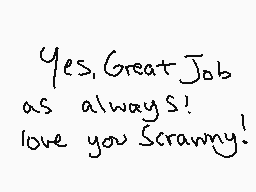 Yes, Great Job
as always!
love you Scrawny!